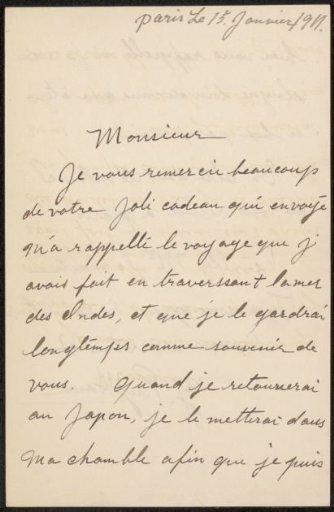 Paris Le 15. Janvier 1911.
Monsieur
Je vous remercie beaucoup
de votre Joli cadeau qui envoyé
qu'a rappellé le voyage que j
avais fait en traverssant la mer
des Indes, et que je le gardrai
longtemps comme souvenir de
vous. Quand je retournerai
au Japon, je le metterai dans
ma chamble afin que je puis